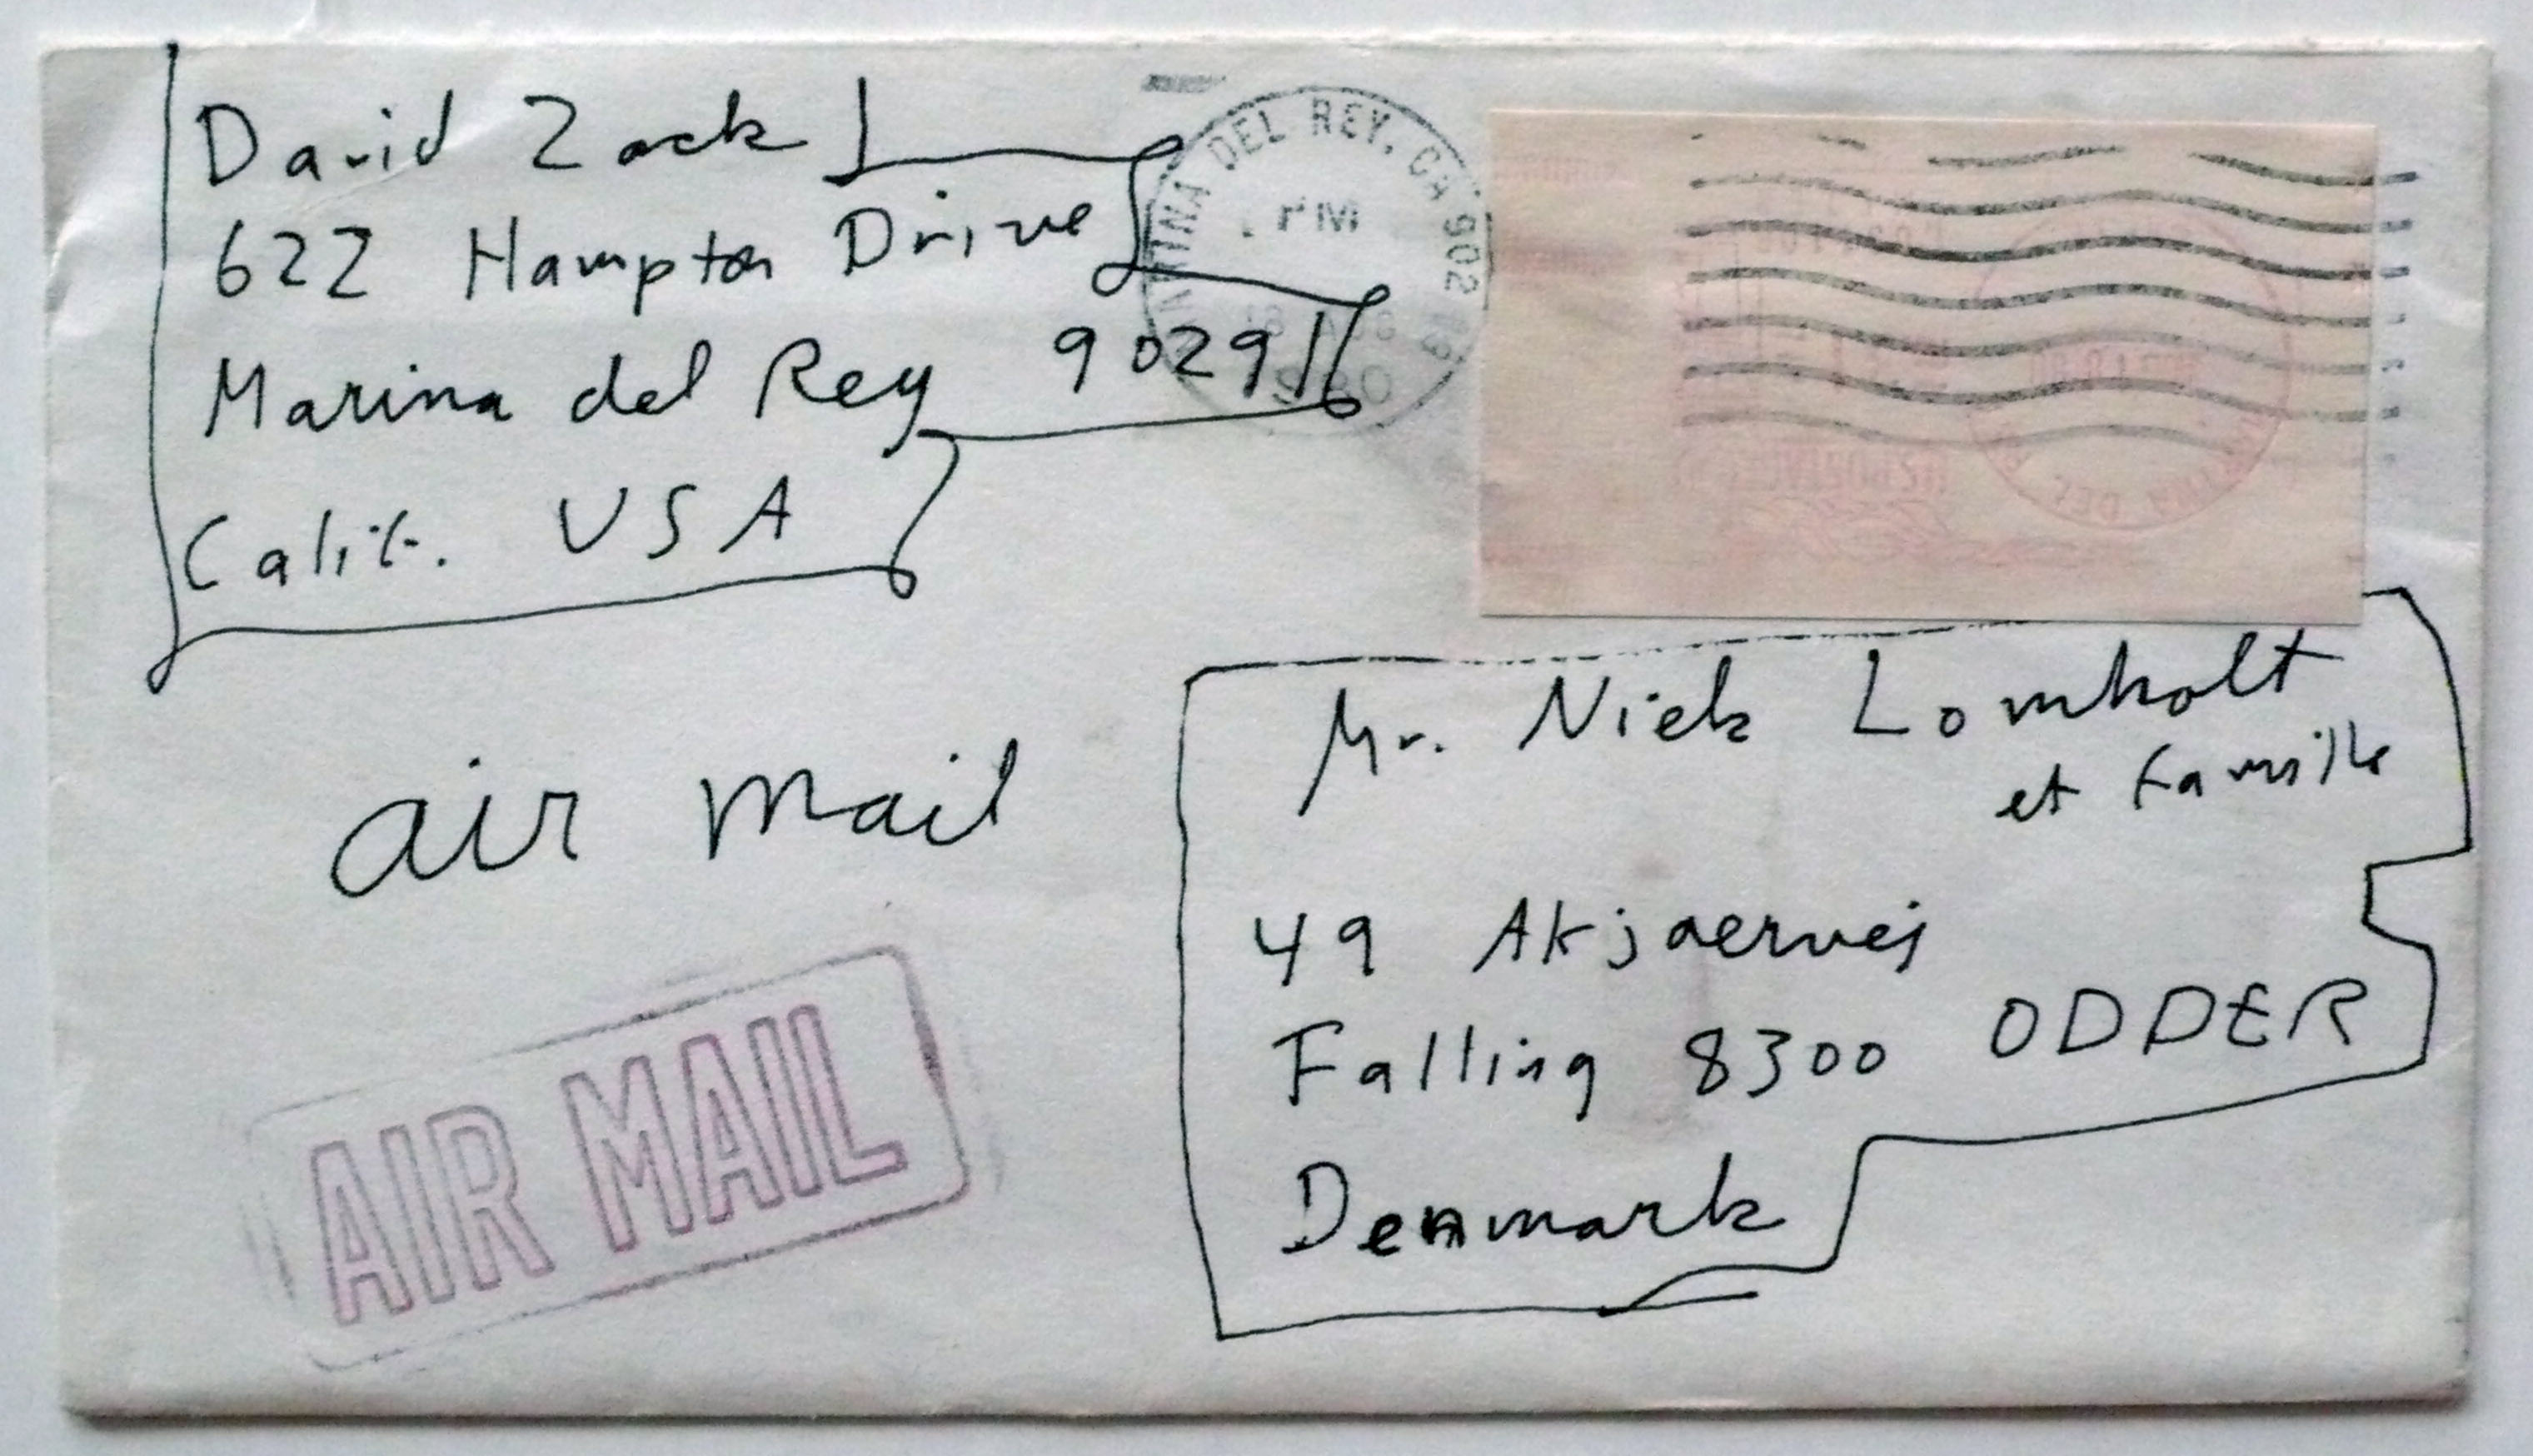 David Zack
622 Hampton Drive
Marina del Rey 90291
Calif. USA
MARINA DEL REY, CA 902
PM
18 AUG
1980
air mail
AIR MAIL
Mr. Niek Lomholt
et famille
49 Akjaervej
Falling 8300 ODDER
Denmark